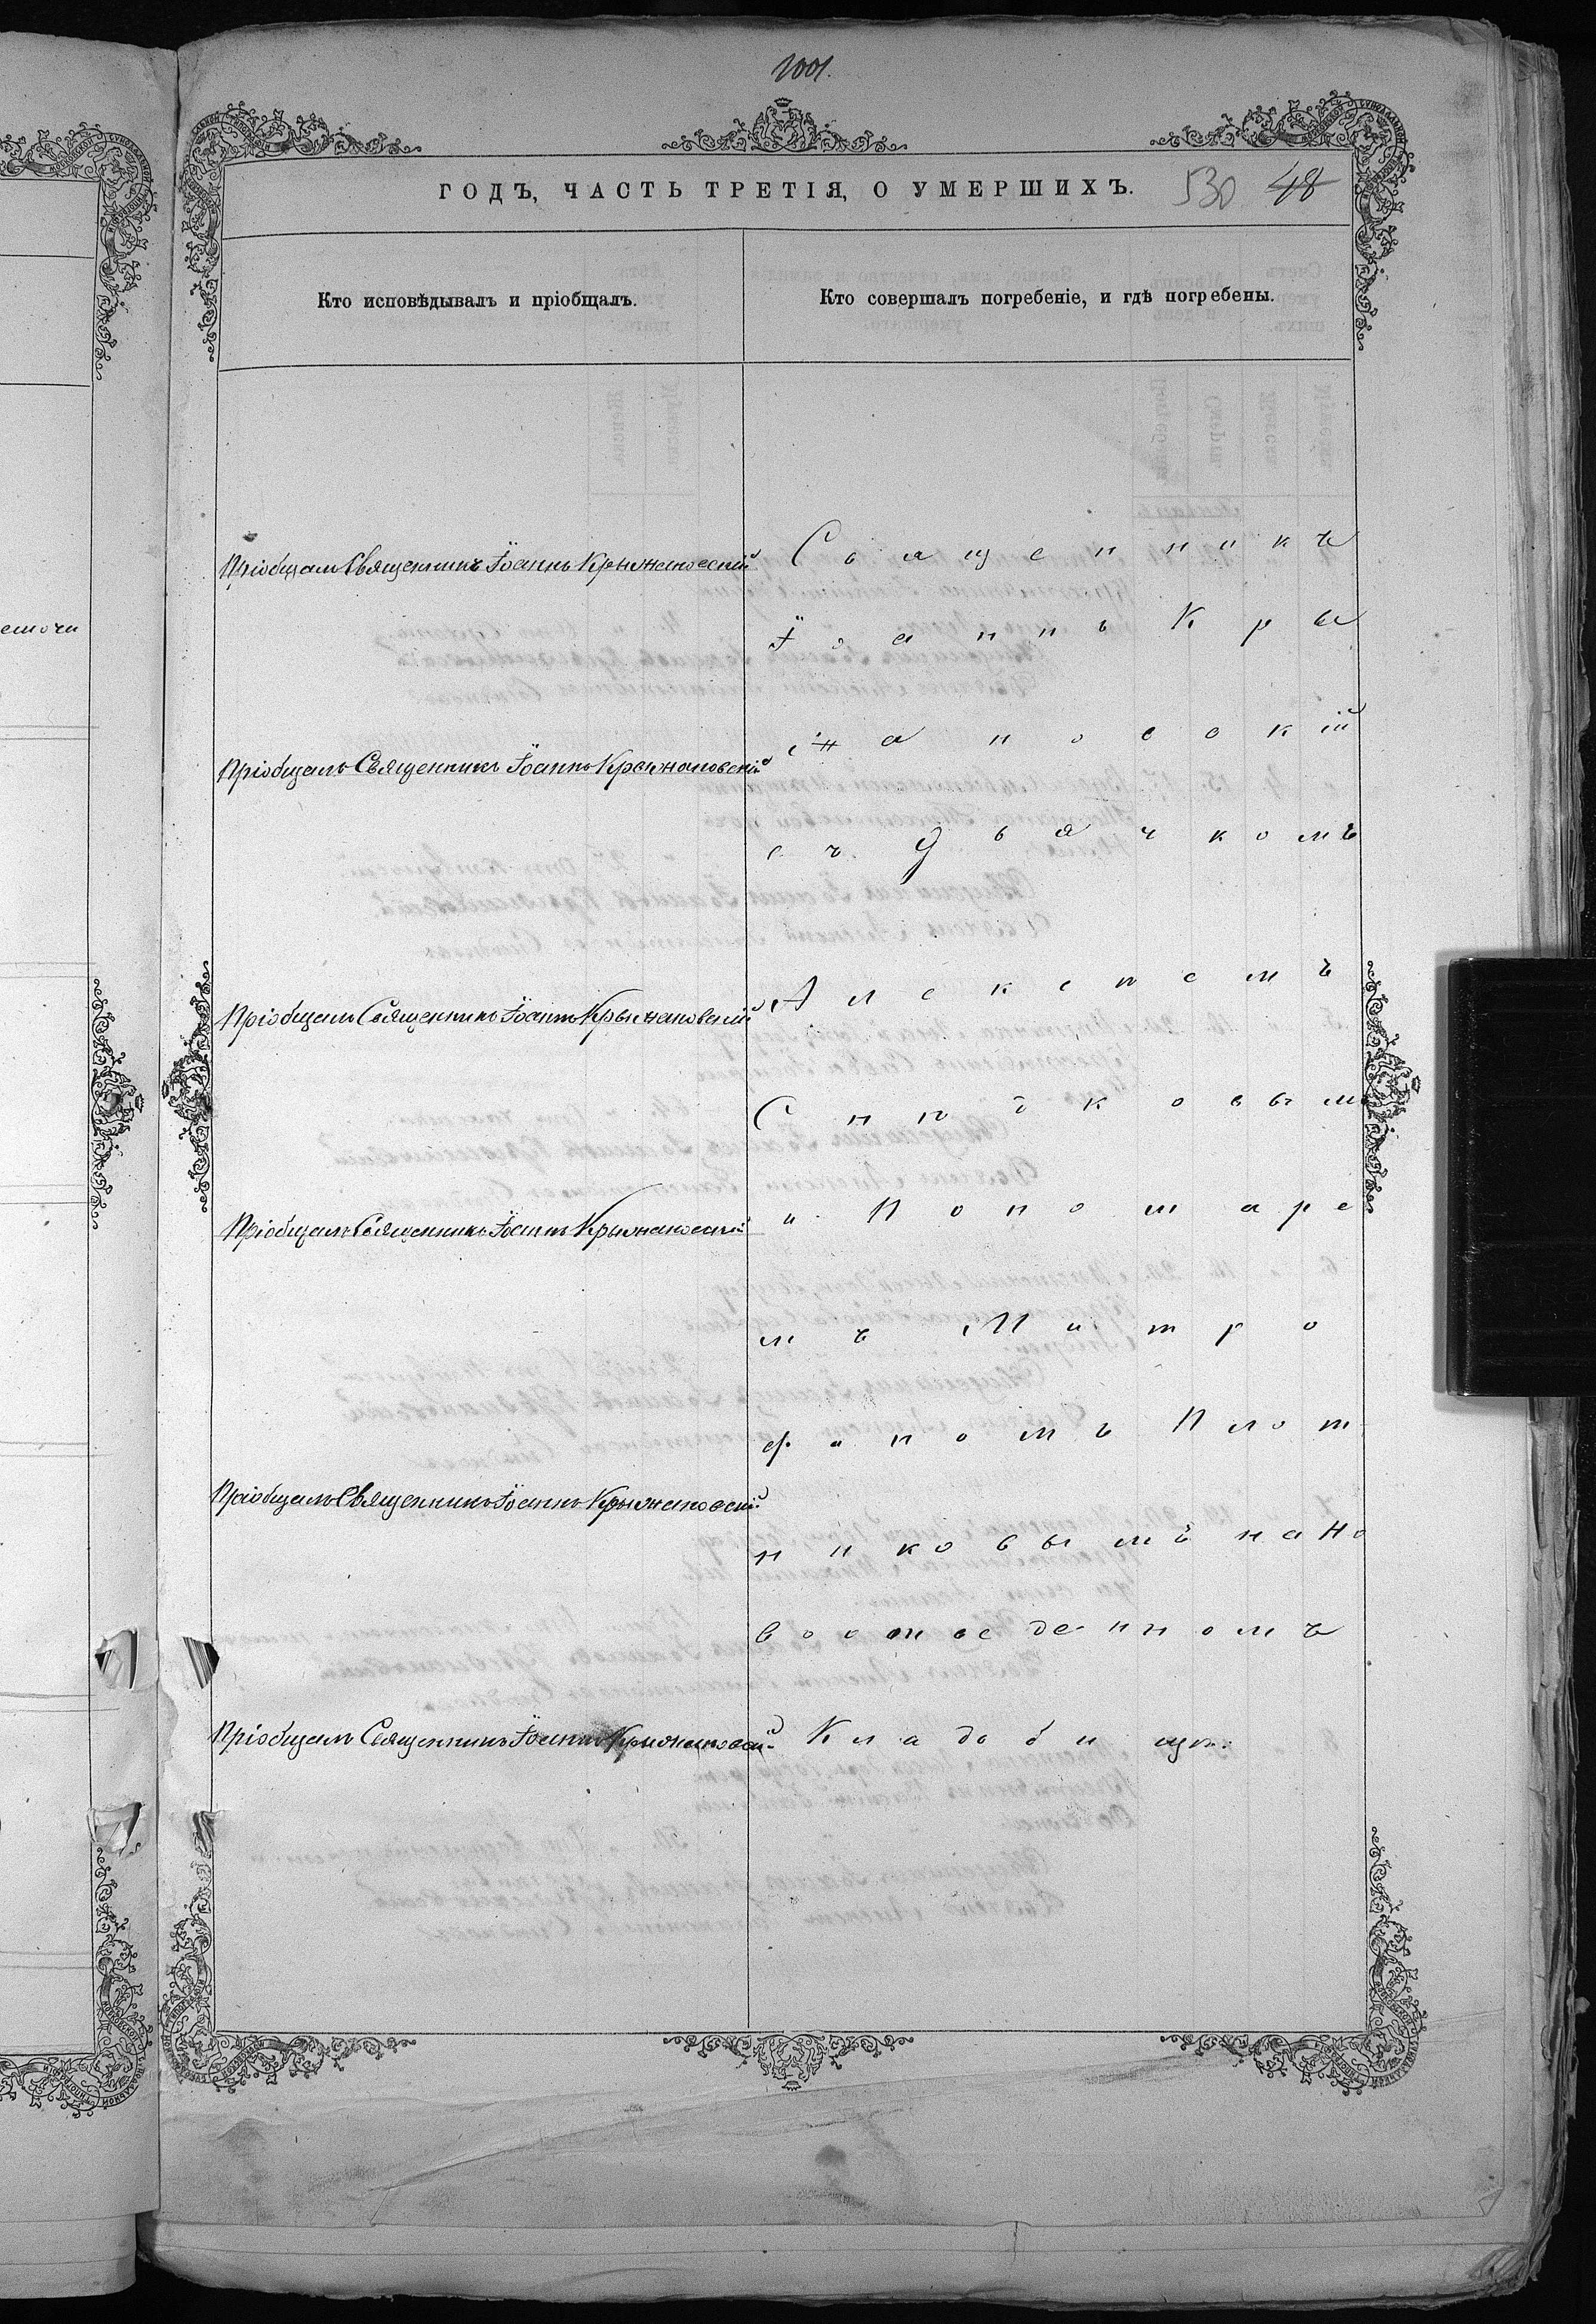 1001.
ГОДЪ, ЧАСТЬ ТРЕТІЯ, О УМЕРШИХЪ.
530 48
Кто исповѣдывалъ и пріобщалъ.
Кто совершалъ погребеніе, и гдѣ погребены.
Пріобщалъ Священникъ Іоаннъ Крыжановскій
Пріобщалъ Священникъ Іоаннъ Крыжановскій
Пріобщалъ Священникъ Іоаннъ Крыжановскій
Пріобщалъ Священникъ Іоаннъ Крыжановскій
Пріобщалъ Священникъ Іоаннъ Крыжановскій
Пріобщалъ Священникъ Іоаннъ Крыжановскій
Священникъ
Іоаннъ Кры
жановскій
съ Дьячкомъ
Алексѣемъ
и Пономаре
мъ Митро
фаномъ Плот
никовымъ на Но
воотведенномъ
Кладбищѣ.